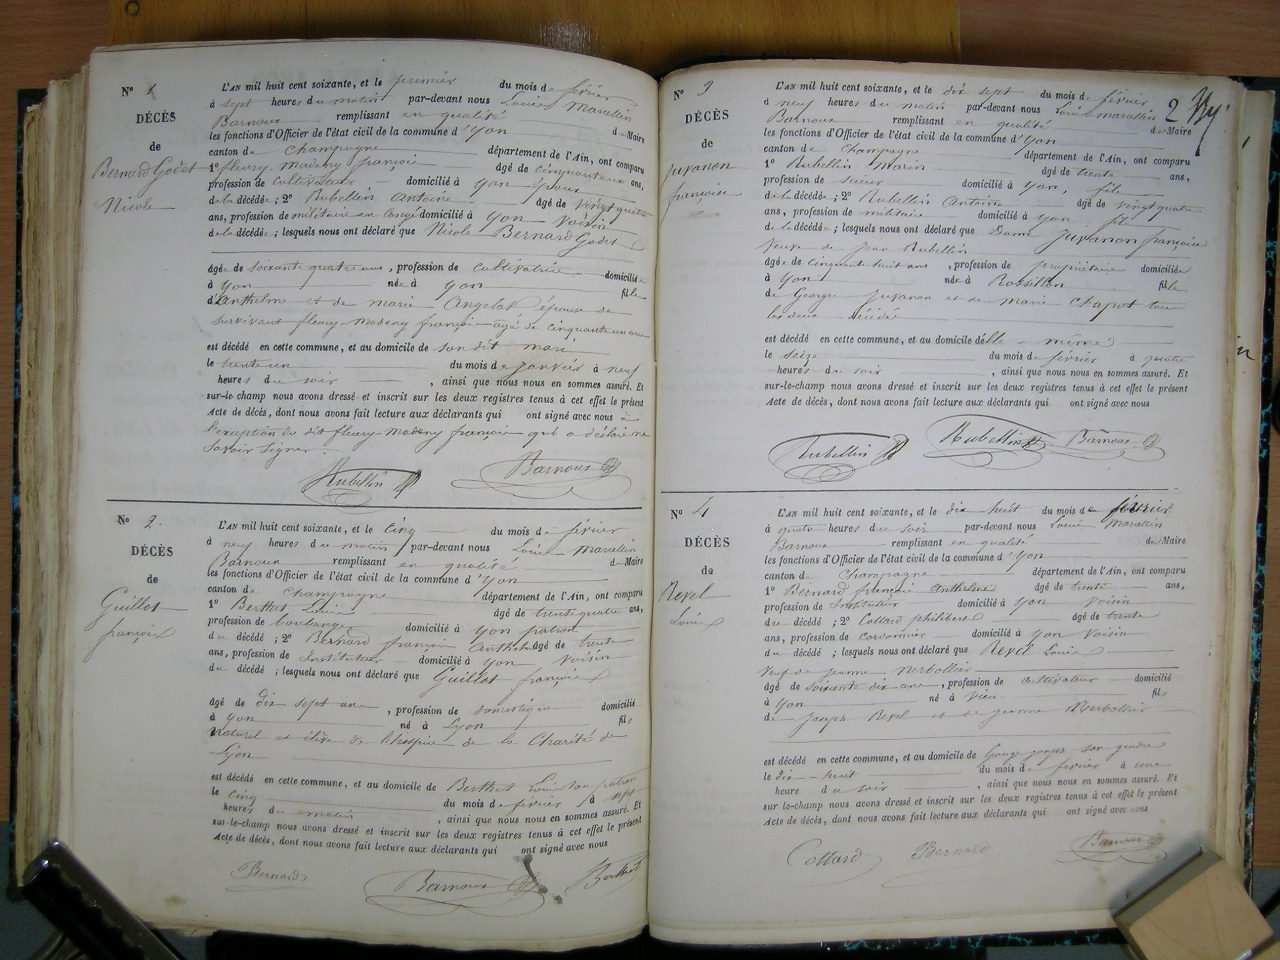 N° 1
DÉCÈS
de
Bernard Godet
Nicole
L'AN mil huit cent soixante, et le premier du mois de février
à sept heures du matin par-devant nous Louis Marcellin
Barnoux remplissant en qualité de Maire
les fonctions d'Officier de l'état civil de la commune d'Yon
canton de Champagne département de l'Ain, ont comparu
1° fleury Madeny françois âgé de cinquante un ans,
profession de cultivateur domicilié à Yon Époux
de la décédée ; 2° Rubellin Antoine âgé de vingt quatre
ans, profession de militaire en congé domicilié à Yon Voisin
de la décédée ; lesquels nous ont déclaré que Nicole Bernard Godet
âgée de soixante quatre ans, profession de cultivatrice domiciliée
à Yon née à Yon fille
d'Anthelme et de marie Angelot, épouse de
survivant fleury Madeny françois âgé de cinquante un ans
est décédée en cette commune, et au domicile de son dit mari
le trente un du mois de janvier à neuf
heures du soir, ainsi que nous nous en sommes assuré. Et
sur-le-champ nous avons dressé et inscrit sur les deux registres tenus à cet effet le présent
Acte de décès, dont nous avons fait lecture aux déclarants qui ont signé avec nous à
l'exception du dit fleury Madeny françois qui a déclaré ne
savoir signer.
Rubellin Barnoux
N° 2.
DÉCÈS
de
Guillot
françois
L'AN mil huit cent soixante, et le cinq du mois de février
à neuf heures du matin par-devant nous Louis Marcellin
Barnoux remplissant en qualité de Maire
les fonctions d'Officier de l'état civil de la commune d'Yon
canton de Champagne département de l'Ain, ont comparu
1° Berthet Louis âgé de trente quatre ans,
profession de boulanger domicilié à Yon patron
du décédé ; 2° Bernard françois Anthelme âgé de trente
ans, profession de Instituteur domicilié à Yon Voisin
du décédé ; lesquels nous ont déclaré que Guillot françois
âgé de dix sept ans, profession de domestique domicilié
à Yon né à Lyon fils
Naturel et élève de l'hospice de la Charité de
Lyon
est décédé en cette commune, et au domicile de Berthet Louis son patron
le cinq du mois de février à sept
heures du matin, ainsi que nous nous en sommes assuré. Et
sur-le-champ nous avons dressé et inscrit sur les deux registres tenus à cet effet le présent
Acte de décès, dont nous avons fait lecture aux déclarants qui ont signé avec nous
Bernard Barnoux Berthet
2
N° 3
DÉCÈS
de
Juvanon
françoise
L'AN mil huit cent soixante, et le dix sept du mois de février
à neuf heures du matin par-devant nous Louis Marcellin
Barnoux remplissant en qualité de Maire
les fonctions d'Officier de l'état civil de la commune d'Yon
canton de Champagne département de l'Ain, ont comparu
1° Rubellin Marin âgé de trente ans,
profession de domicilié à Yon, fils
de la décédée ; 2° Rubellin Antoine âgé de vingt quatre
ans, profession de militaire domicilié à Yon fils
de la décédée ; lesquels nous ont déclaré que Dame Juvanon françoise
veuve de Jean Rubellin
âgée de cinquante huit ans, profession de propriétaire domiciliée
à Yon née à Rossillon fille
de George Juvanon et de Marie Chapot tous
les deux décédés
est décédée en cette commune, et au domicile d'elle même
le seize du mois de février à quatre
heures du soir, ainsi que nous nous en sommes assuré. Et
sur-le-champ nous avons dressé et inscrit sur les deux registres tenus à cet effet le présent
Acte de décès, dont nous avons fait lecture aux déclarants qui ont signé avec nous
Rubellin Rubellin Barnoux
N° 4
DÉCÈS
de
Revel
Louis
L'AN mil huit cent soixante, et le dix huit du mois de février
à quatre heures du soir par-devant nous Louis Marcellin
Barnoux remplissant en qualité de Maire
les fonctions d'Officier de l'état civil de la commune d'Yon
canton de Champagne département de l'Ain, ont comparu
1° Bernard françois Anthelme âgé de trente ans,
profession de Instituteur domicilié à Yon voisin
du décédé ; 2° Collard philibert âgé de trente
ans, profession de cordonnier domicilié à Yon Voisin
du décédé ; lesquels nous ont déclaré que Revel Louis
Veuf de jeanne Merbollier
âgé de soixante dix ans, profession de cultivateur domicilié
à Yon né à Vieu fils
de Joseph Revel et de jeanne Merbollier
est décédé en cette commune, et au domicile de son gendre
le dix huit du mois de février à une
heure du soir, ainsi que nous nous en sommes assuré. Et
sur-le-champ nous avons dressé et inscrit sur les deux registres tenus à cet effet le présent
Acte de décès, dont nous avons fait lecture aux déclarants qui ont signé avec nous
Collard Bernard Barnoux